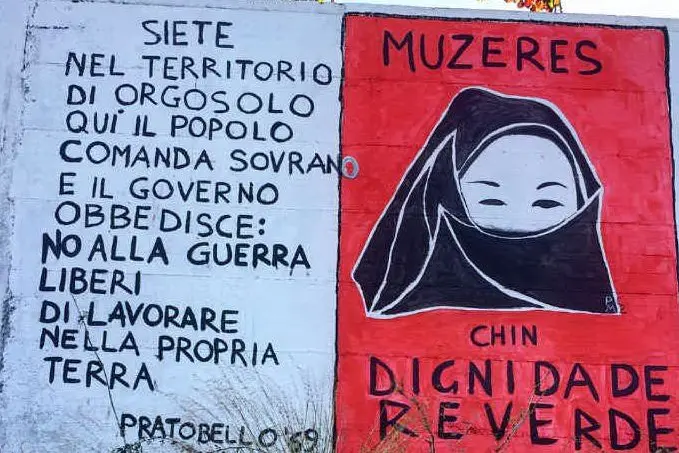 SIETE
NEL TERRITORIO
DI ORGOSOLO
QUI IL POPOLO
COMANDA SOVRANO
E IL GOVERNO
OBBEDISCE:
NO ALLA GUERRA
LIBERI
DI LAVORARE
NELLA PROPRIA
TERRA
PRATOBELLO '69
MUZERES
PM
CHIN
DIGNIDADE
REVERDE